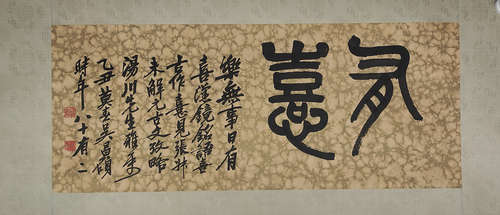 有憙
樂無事日有
喜漢鏡銘語喜
古作憙見張叔
未解元古文攷略
湯川先生雅
乙丑莫春吳昌碩
時年八十有二